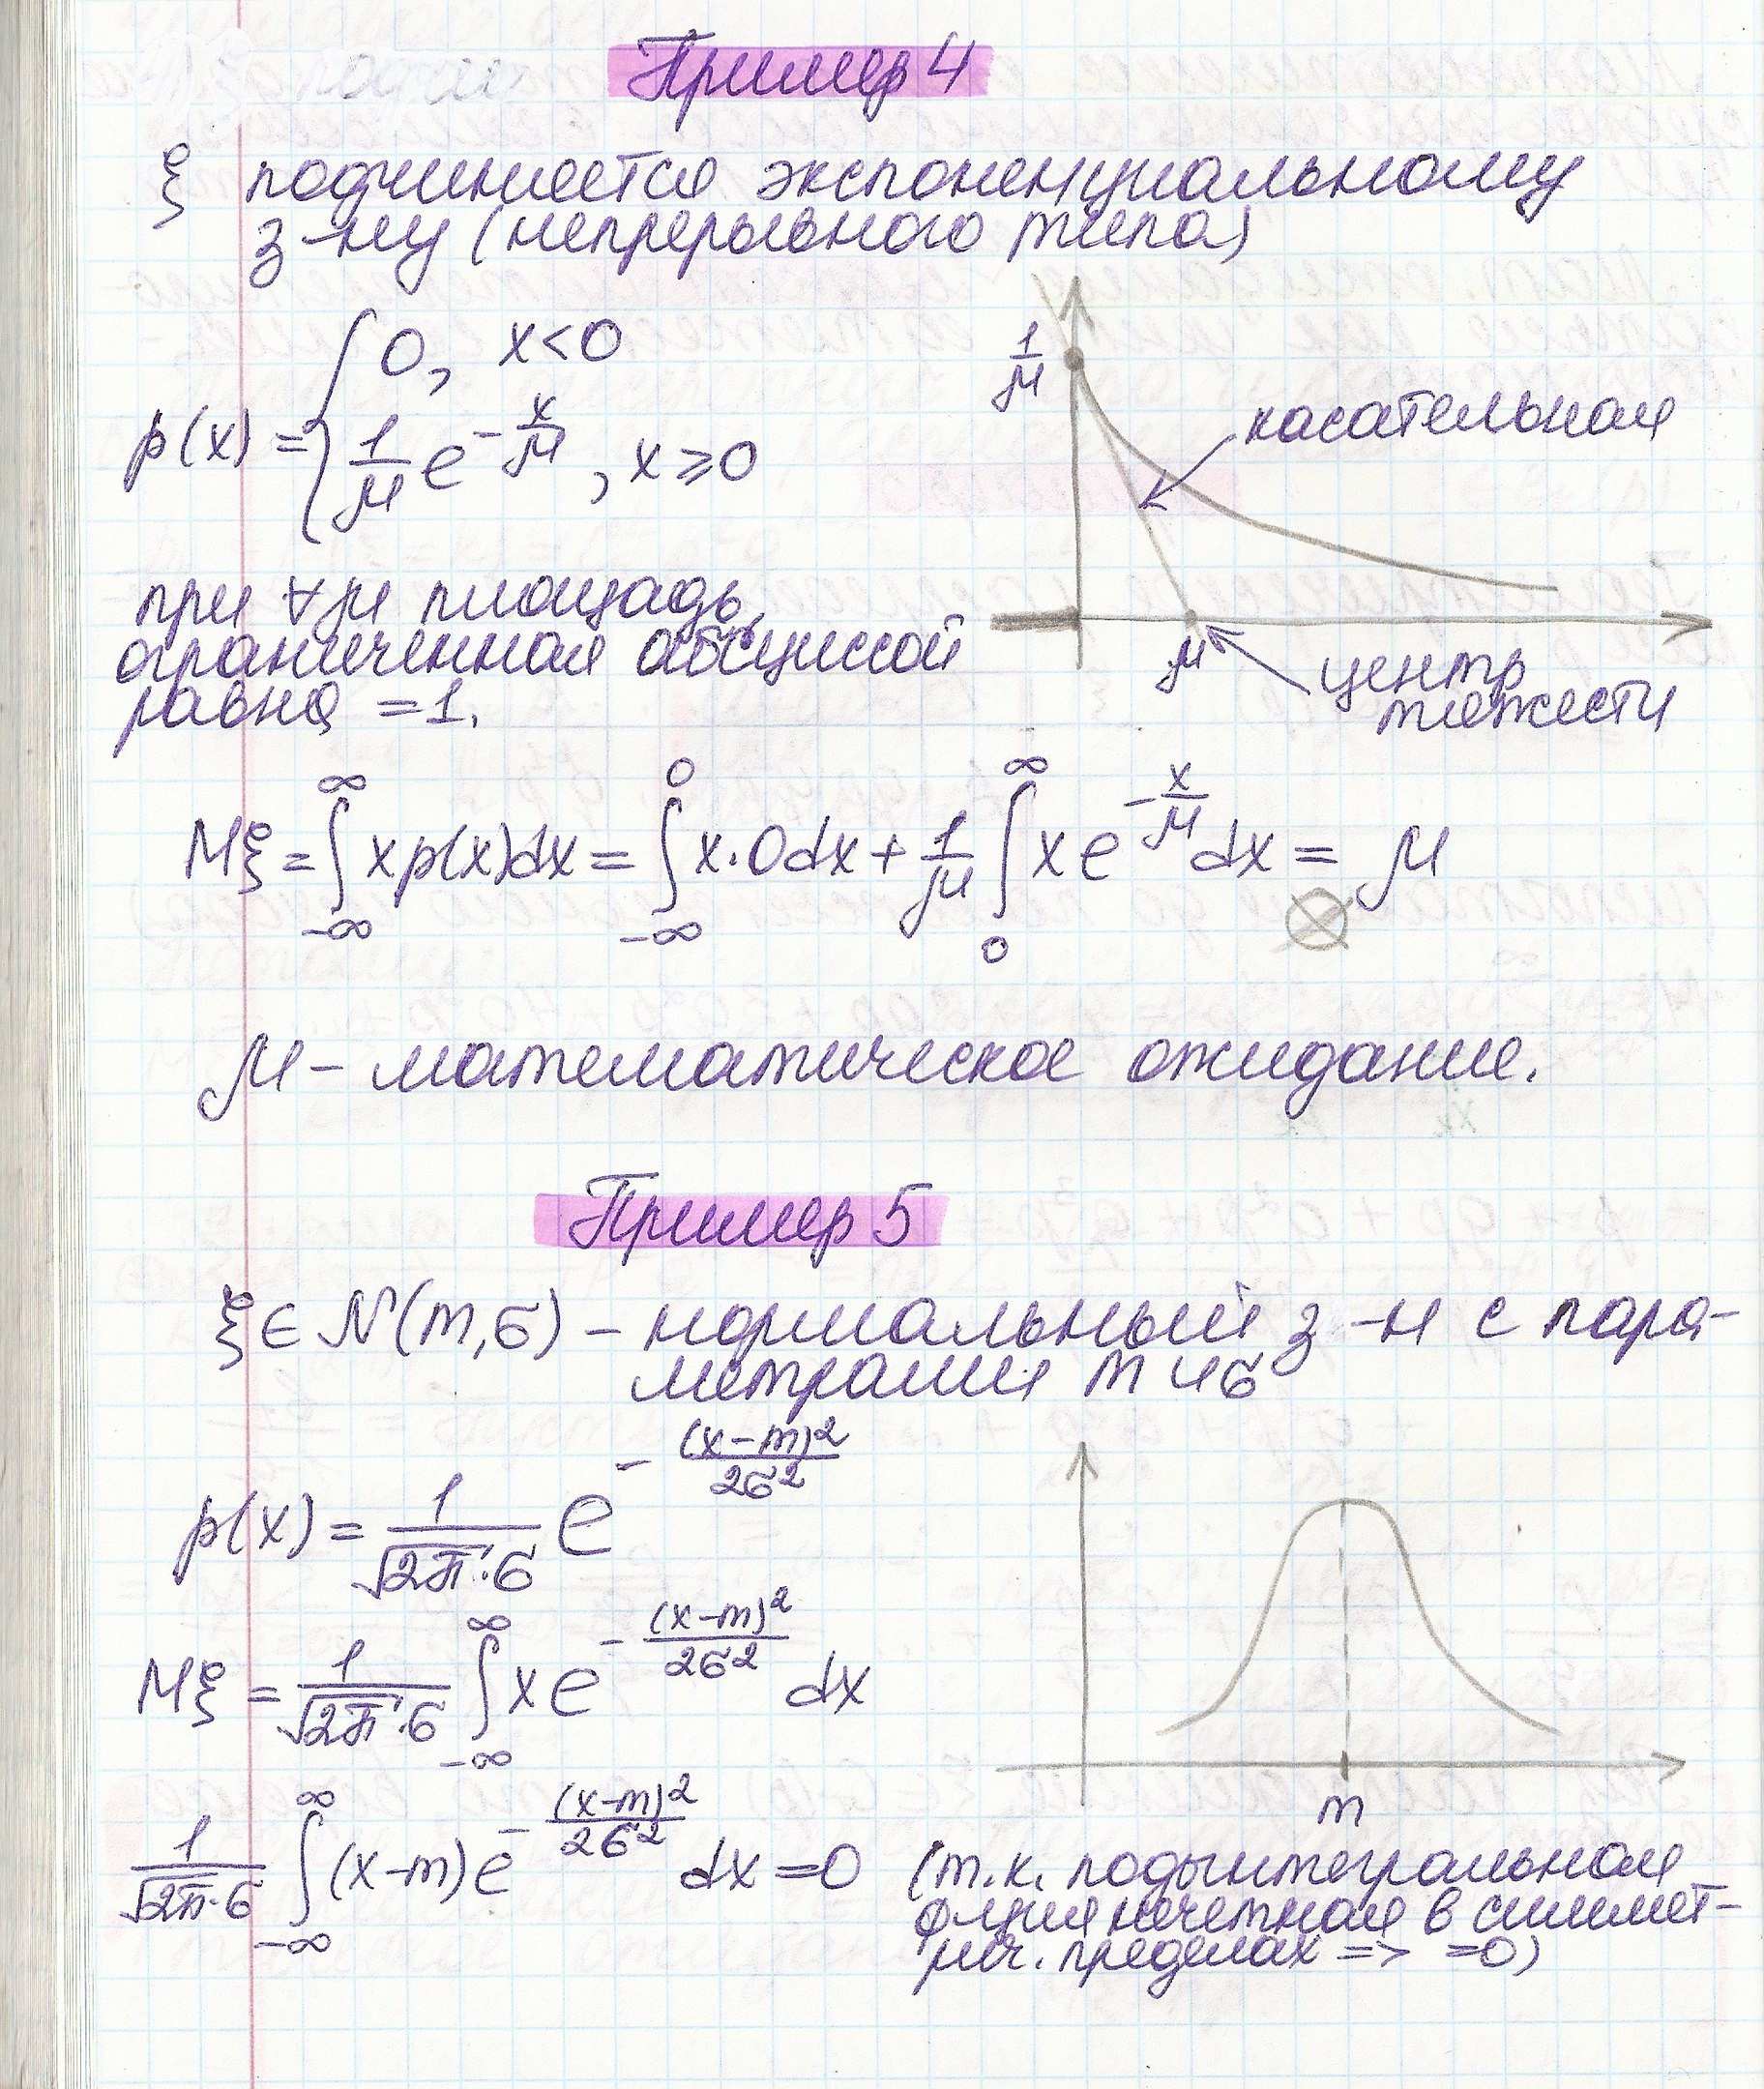 Пример 4
ξ подчиняется экспоненциальному
з-ну (непрерывного типа)
p(x) = { 0, x<0
1/μ e^(-x/μ), x≥0
1/μ
касательная
μ
центр
тяжести
при ∀μ площадь,
ограниченная абсциссой
равна =1.
Mξ = ∫_{-∞}^{∞} x p(x)dx = ∫_{-∞}^{0} x·0dx + 1/μ ∫_{0}^{∞} x e^(-x/μ) dx = μ
⊗
μ – математическое ожидание.
Пример 5
ξ ∈ N(m,σ) – нормальный з-н с пара-
метрами m и σ
p(x) = 1/(√2π·σ) e^(-(x-m)²/2σ²)
Mξ = 1/(√2π·σ) ∫_{-∞}^{∞} x e^(-(x-m)²/2σ²) dx
m
1/(√2π·σ) ∫_{-∞}^{∞} (x-m) e^(-(x-m)²/2σ²) dx = 0
(т.к. подынтегральная
ф-ция нечетная в симмет-
рич. пределах => =0)